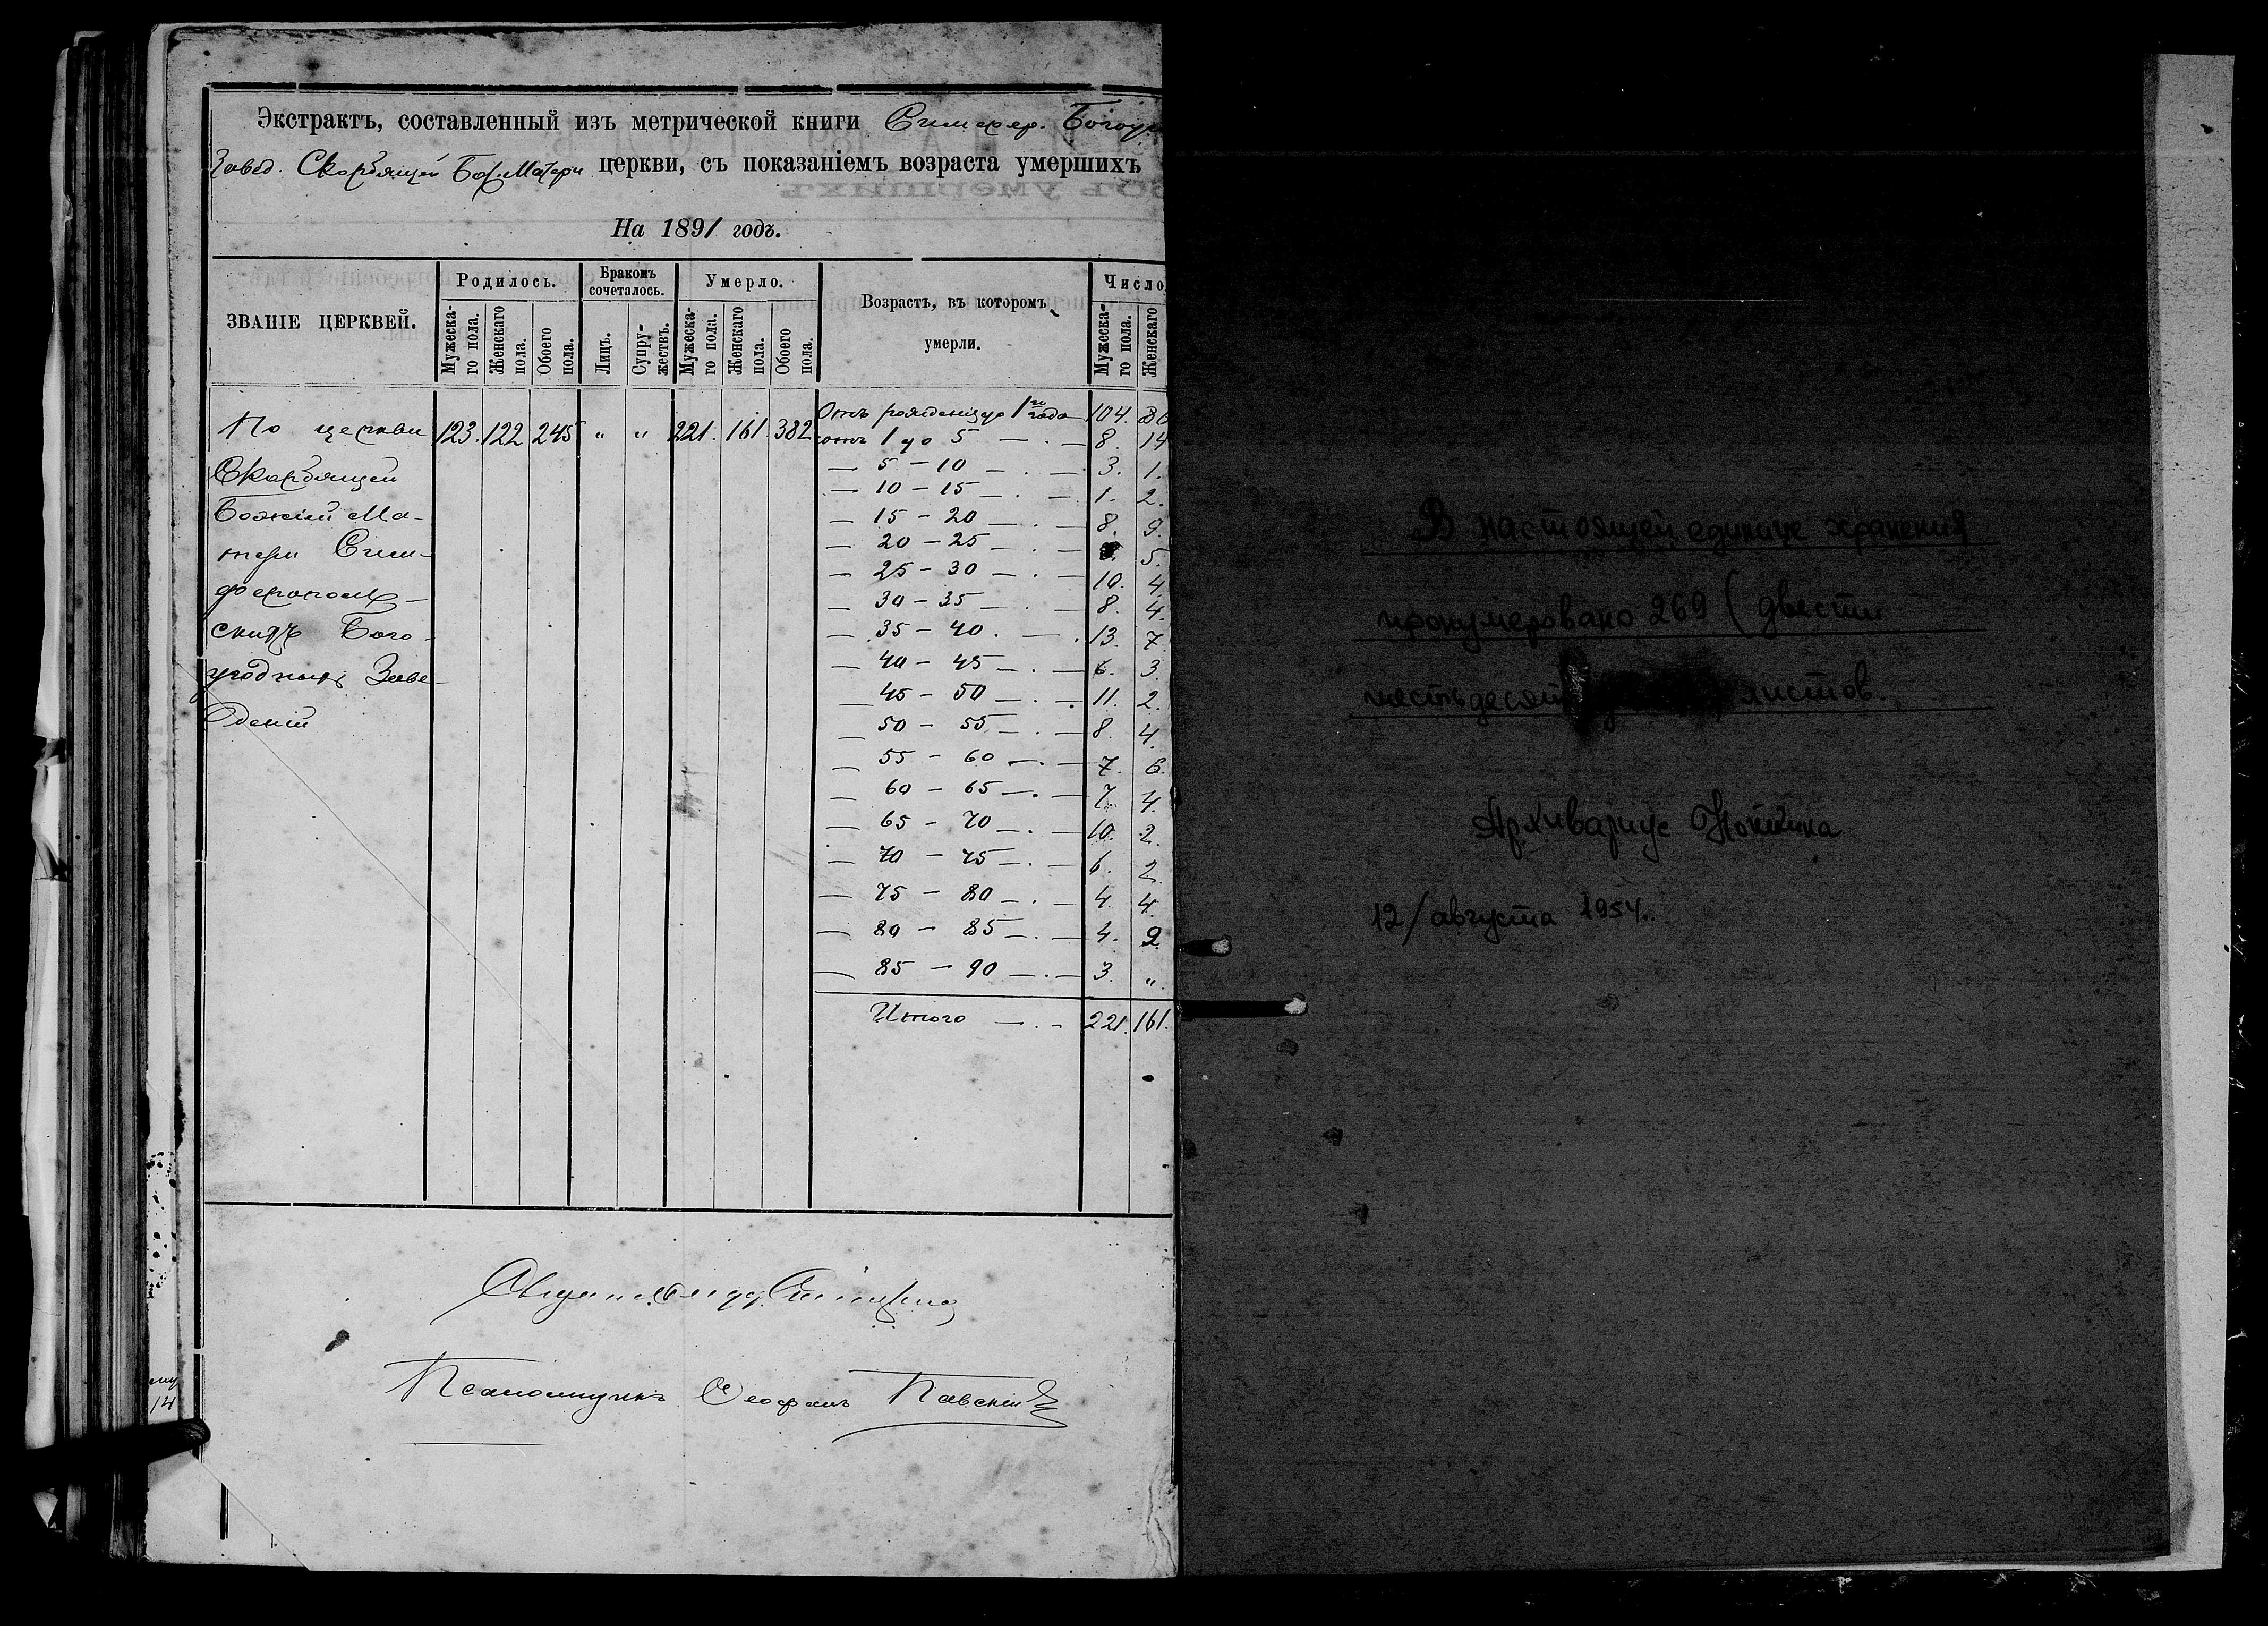 Экстрактъ, составленный изъ метрической книги Симфер. Богоуг
Завед. Скорбящей Бож. Матери церкви, съ показаніемъ возраста умершихъ
На 1891 годъ.
ЗВАНІЕ ЦЕРКВЕЙ.
Родилось.
Мужеска-
го пола.
Женскаго
пола.
Обоего
пола.
Бракомъ
сочеталось.
Лицъ.
Супру-
жествъ.
Умерло.
Мужеска-
го пола.
Женскаго
пола.
Обоего
пола.
Возрастъ, въ которомъ
умерли.
Число
Мужеска-
го пола.
Женскаго
По церкви 123. 122 245 " " 221. 161. 382
Скорбящей
Божіей Ма-
тери Сим-
феропол-
скихъ Бого-
угодныхъ Заве-
деній
Отъ рожденія до 1го года 104.
отъ 1 до 5 — . — 8. 14
— 5 — 10 — . — 3. 1.
— 10 — 15 — . — 1. 2.
— 15 — 20 — . — 8. 9.
— 20 — 25 — . — 5.
— 25 — 30 — . — 10. 4.
— 30 — 35 — . — 8. 4.
— 35 — 40 . — . 13. 7.
— 40 — 45 — . — 6. 3.
— 45 — 50 — . — 11. 2.
— 50 — 55 — . — 8. 4.
— 55 — 60 — . — 7. 6.
— 60 — 65 — . — 7. 4.
— 65 — 70 — . — 10. 2.
— 70 — 75 — . — 6. 2.
— 75 — 80 — . — 4. 4.
— 80 — 85 — . — 4. 2.
— 85 — 90 — . — 3. ".
Итого — . — 221. 161.
Псаломщикъ Феофанъ Павскій
14
В настоящей единице хранения
пронумеровано 269 (двести
шестьдесят листов.
Архивариус
12/августа 1954.